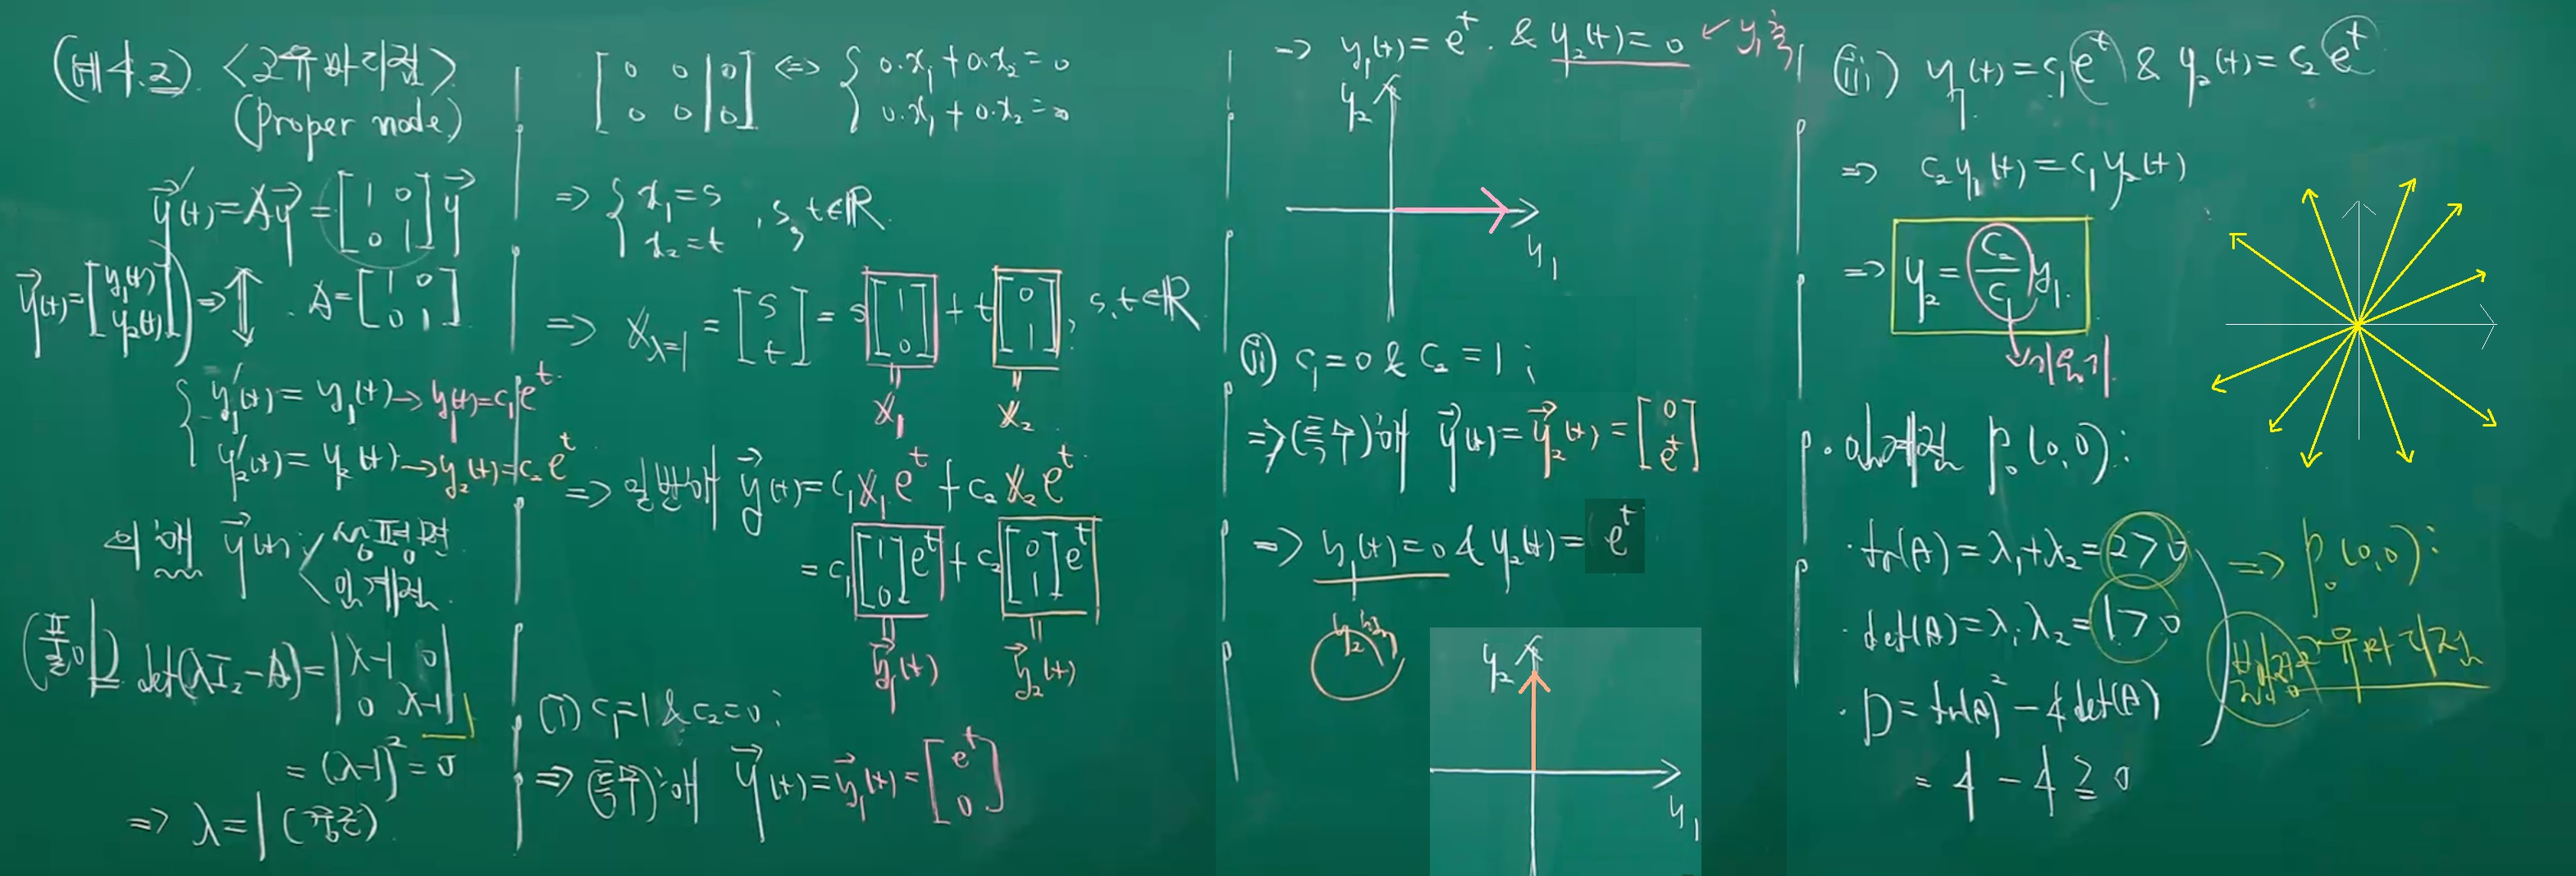 (예4.2) <고유마디점>
(Proper node)
y⃗'(t)=Ay⃗=[1 0; 0 1]y⃗
y⃗(t)=[y₁(t); y₂(t)]) ⇒ ⇕ . A=[1 0; 0 1]
{ y₁'(t)=y₁(t)→y₁(t)=c₁eᵗ.
y₂'(t)=y₂(t)→y₂(t)=c₂eᵗ
의 해 y⃗(t)
(풀이) det(λI₂-A)=|λ-1 0; 0 λ-1|
=(λ-1)²=0
⇒ λ=1 (중근)
[0 0 | 0; 0 0 | 0] ⇔ { 0·x₁+0·x₂=0
0·x₁+0·x₂=0
⇒ { x₁=s
x₂=t , s, t∈ℝ.
⇒ 𝕏λ=1 = [s; t] = s[1; 0] + t[0; 1], s,t∈ℝ
‖ ‖
𝕏₁ 𝕏₂
⇒ 일반해 y⃗(t)=c₁𝕏₁eᵗ+c₂𝕏₂eᵗ
=c₁[1; 0]eᵗ+c₂[0; 1]eᵗ
‖ ‖
y⃗₁(t) y⃗₂(t)
(i) c₁=1 & c₂=0;
⇒ (특수)해 y⃗(t)=y⃗₁(t)=[eᵗ; 0]
⇒ y₁(t)=eᵗ. & y₂(t)=0 ✓ y₁축
y₂
y₁
(ii) c₁=0 & c₂=1;
⇒ (특수)해 y⃗(t)=y⃗₂(t)=[0; eᵗ]
⇒ y₁(t)=0 & y₂(t)=eᵗ
y₂축
y₂
y₁
(iii) y₁(t)=c₁eᵗ & y₂(t)=c₂eᵗ
⇒ c₂y₁(t)=c₁y₂(t)
⇒ y₂=(c₂/c₁)y₁.
↳기울기.
· 임계점 P₀(0,0):
· tr(A)=λ₁+λ₂=2>0
· det(A)=λ₁·λ₂=1>0
· D=tr(A)²-4det(A)
=4-4≥0
⇒ P₀(0,0):
고유마디점